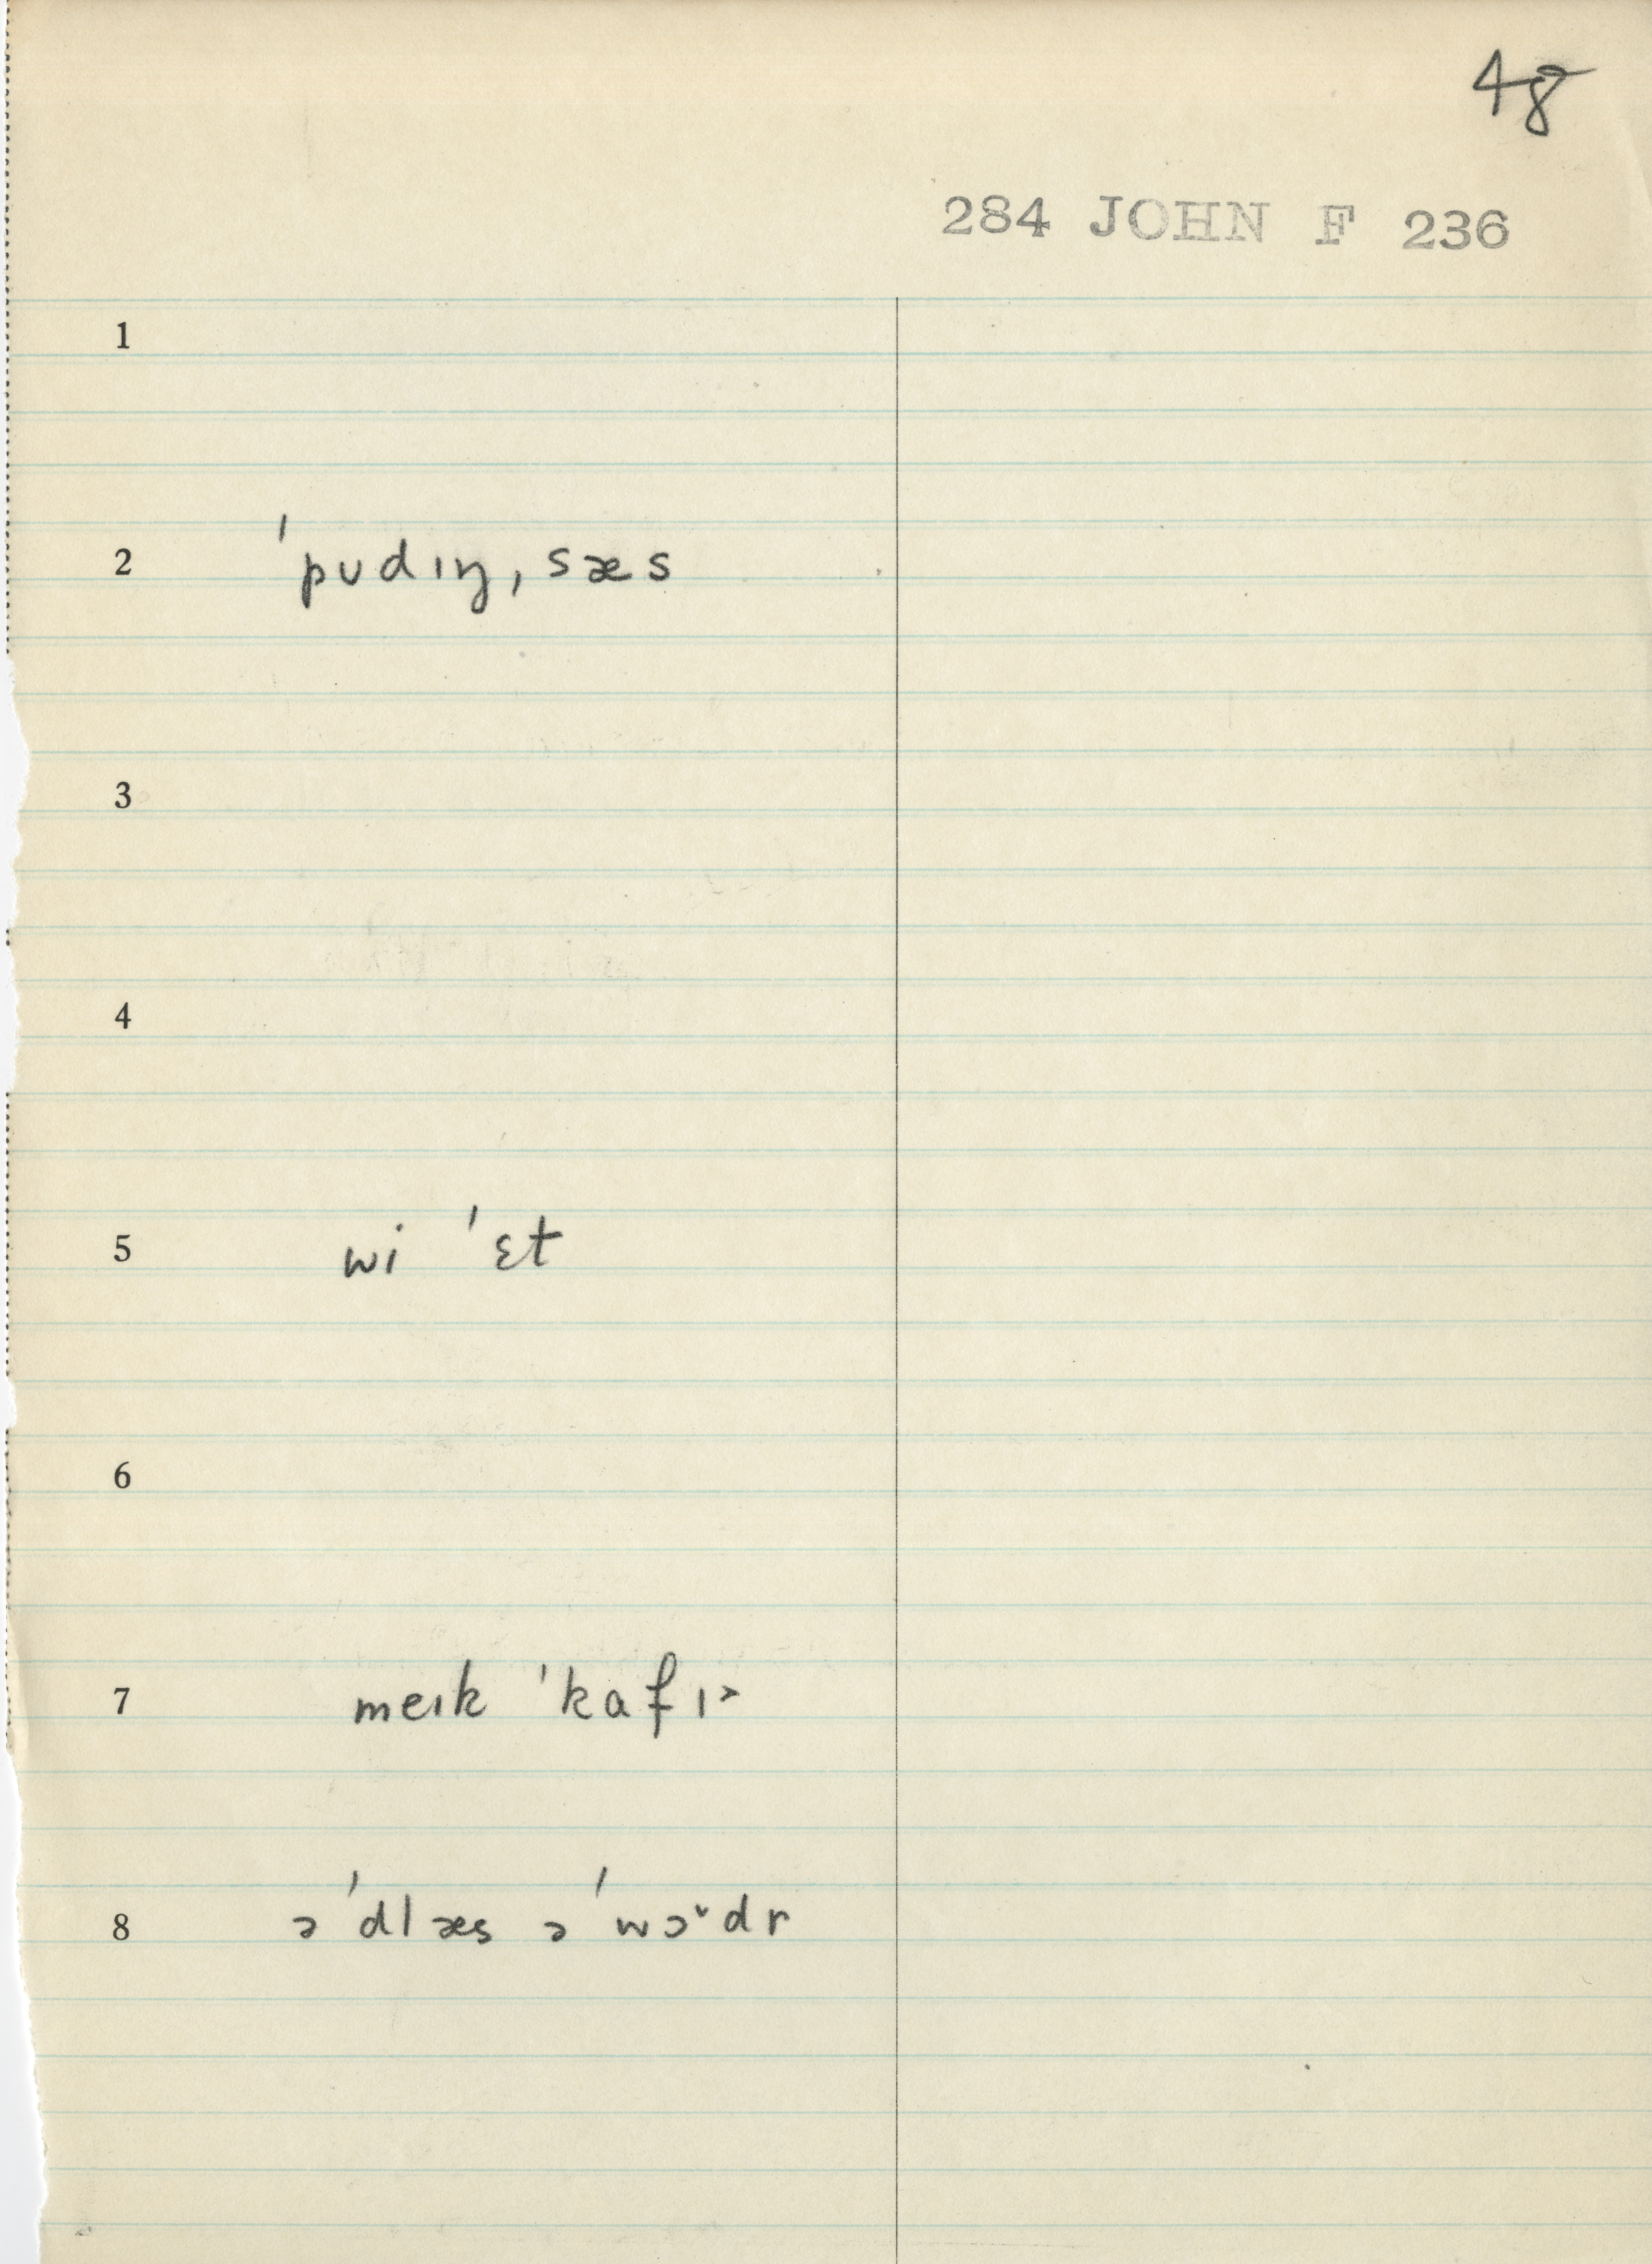 48
284 JOHN F 236
1
2 ˈpʊdɪŋˌsæs
3
4
5 wi ˈɛt
6
7 meɪk ˈkafɪ˃
8 ə ˈdlæs ə ˈwɔ˅dr